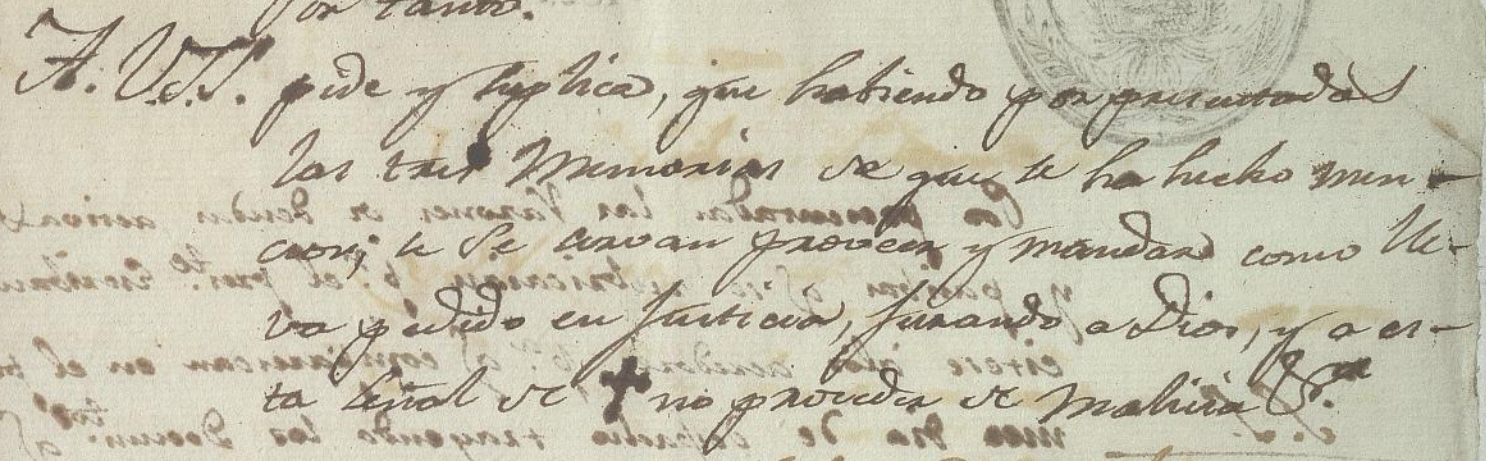 Por tanto.
A. V.S. pide y suplica, que habiendo por presentadas
las tres Memorias de que se ha hecho men-
cion, se se sirvan proveer y mandar como lle-
va pedido en Justicia, jurando a Dios, y a es-
ta señal de † no proceder de malicia &.ª